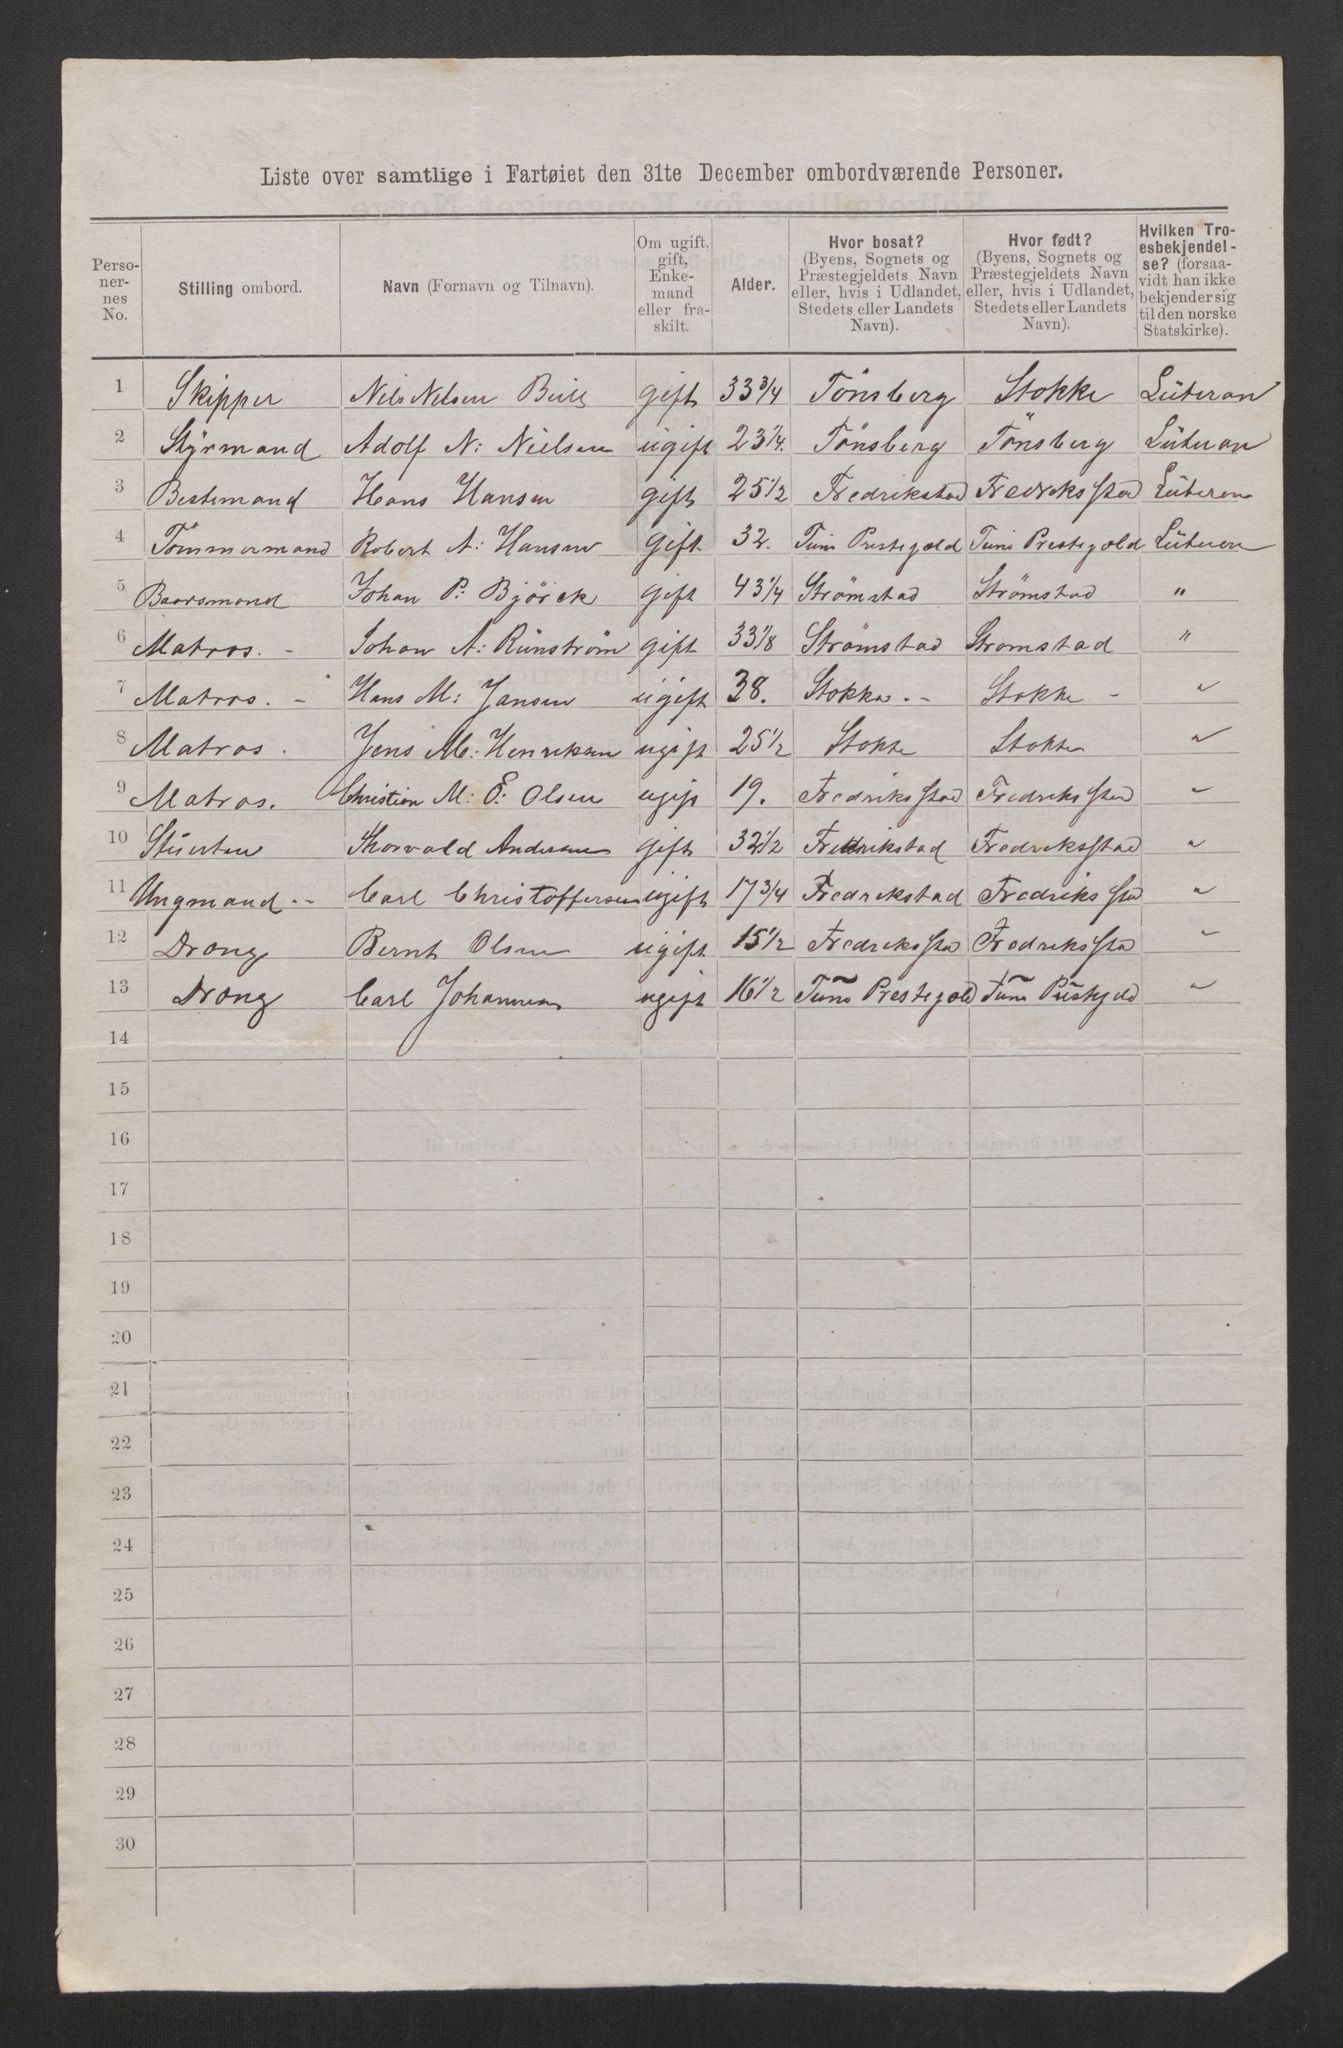 Liste over samtlige i Fartøiet den 31te December ombordværende Personer.
Perso-
ner-
nes
No.
Stilling ombord.
Navn (Fornavn og Tilnavn).
Om ugift,
gift,
Enke-
mand
eller fra-
skilt.
Alder.
Hvor bosat?
(Byens, Sognets og
Præstegjeldets Navn
eller, hvis i Udlandet,
Stedets eller Landets
Navn).
Hvor født?
(Byens, Sognets og
Præstegjeldets Navn
eller, hvis i Udlandet,
Stedets eller Landets
Navn).
Hvilken Tro-
esbekjendel-
se? (forsaa-
vidt han ikke
bekjender sig
til den norske
Statskirke).
1 Skipper Nils Nelsen gift 33 3/4 Tönsberg Stokke Lüteran
2 Styrmand Adolf N: Nielsen ugift 23 1/4. Tönsberg Tönsberg Lüteran
3 Bestemand Hans Hansen gift 25 1/2 Fredrikstad Fredriksstad Lüteran
4 Tömmermand Robert A: Hansen gift 32. Tune Prestegæld Tune Prestegæld Lüteran
5 Baarsmand Johan P: Björck gift 43 1/4 Strömstad Strömstad "
6 Matros. - Johan A: Runström gift 33 1/8 Strömstad Stromstad "
7 Matros. - Hans M: Jansen ugift 38. Stokke. - Stokke - "
8 Matros. Jens M: Henriksen ugift 25 1/2 Stokke Stokke "
9 Matros. Christian M: E: Olsen ugift 19. Fredriksstad Fredriksstad "
10 Stuerten Thorvald Andersen gift 32 1/2 Fredrikstad Fredriksstad "
11 Ungmand -- Carl Christoffersen ugift 17 3/4 Fredrikstad Fredriksstad "
12 Dreng Bernt Olsen ugift 15 1/2 Fredriksstad Fredriksstad "
13 Dreng Carl Johannesen ugift 16 1/2 Tune Prestegæld Tune Prestegæld "
14
15
16
17
18
19
20
21
22
23
24
25
26
27
28
29
30